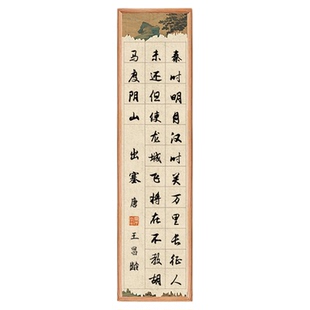 秦时明月汉时关万里长征人
未还但使龙城飞将在不教胡
马度阴山 出塞 唐 王昌龄